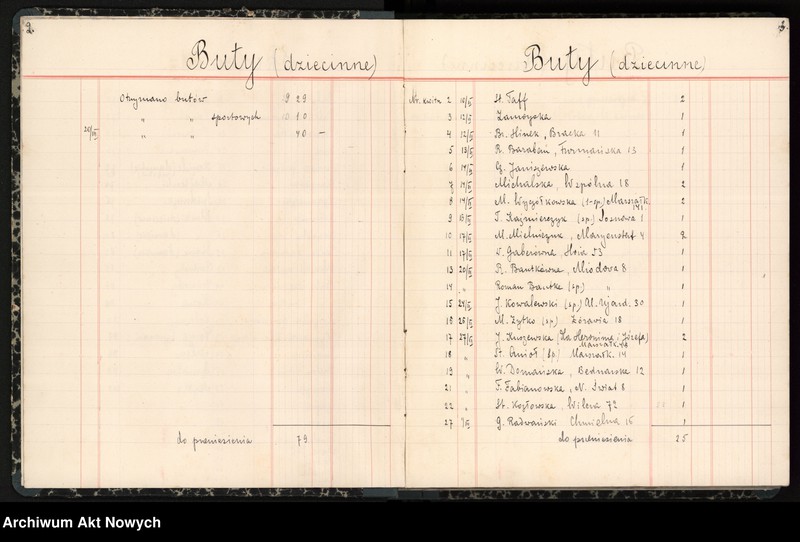 2.
Buty (dziecinne)
Otrzymano butów 29
" " sportowych 10
" " 40 —
do przeniesienia 79
3.
Buty (dziecinne)
Nr. kwitu 2 St. Taff 2
3 12/V Zamoyska 1
4 12/V Br. Hinek, Bracka 11 1
5 13/V R. Baraban, Furmańska 13 1
6 14/V Janiszewska 1
7 14/V Michalska, Wspólna 18 2
8 14/V M. Wyczółkowska Marszałk. 2
9 15/V T. Kaźmierczyk (sp.) Sosnowa 1 1
10 17/V M. Mielniczuk, Maryensztat 4 2
11 17/V Gaberówna, Hoża 53 1
13 20/V R. Bautkówna, Miodowa 8 1
14 " Roman Bautke (sp.) " 1
15 24/V J. Kowalewski (sp.) Al. Ujazd. 30 1
15 25/V M. Zytko (sp.) Żórawia 18 1
17 27/V J. (Dla Hieronima i Józefa) 2
18 " St. Anioł (sp.) Marszałk. 14 1
19 " W. Domańska, Bednarska 12 1
21 " T. Fabianowska, N. Świat 8 1
22 " St. Kozłowska, Wilcza 72 1
27 G. Radwański Chmielna 15 1
do przeniesienia 25
Archiwum Akt Nowych